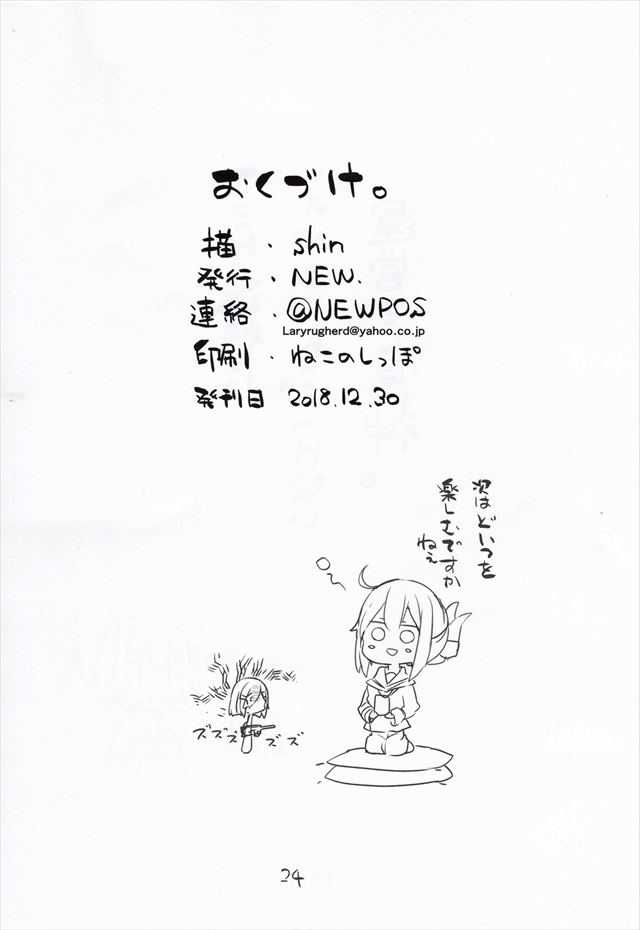 おくづけ。
描・shin
発行・NEW.
連絡・@NEWPOS
Laryrugherd@yahoo.co.jp
印刷・ねこのしっぽ
発刊日 2018.12.30
次はどいつを
楽しむですか
ねぇ
ズズズ
ズズ
24